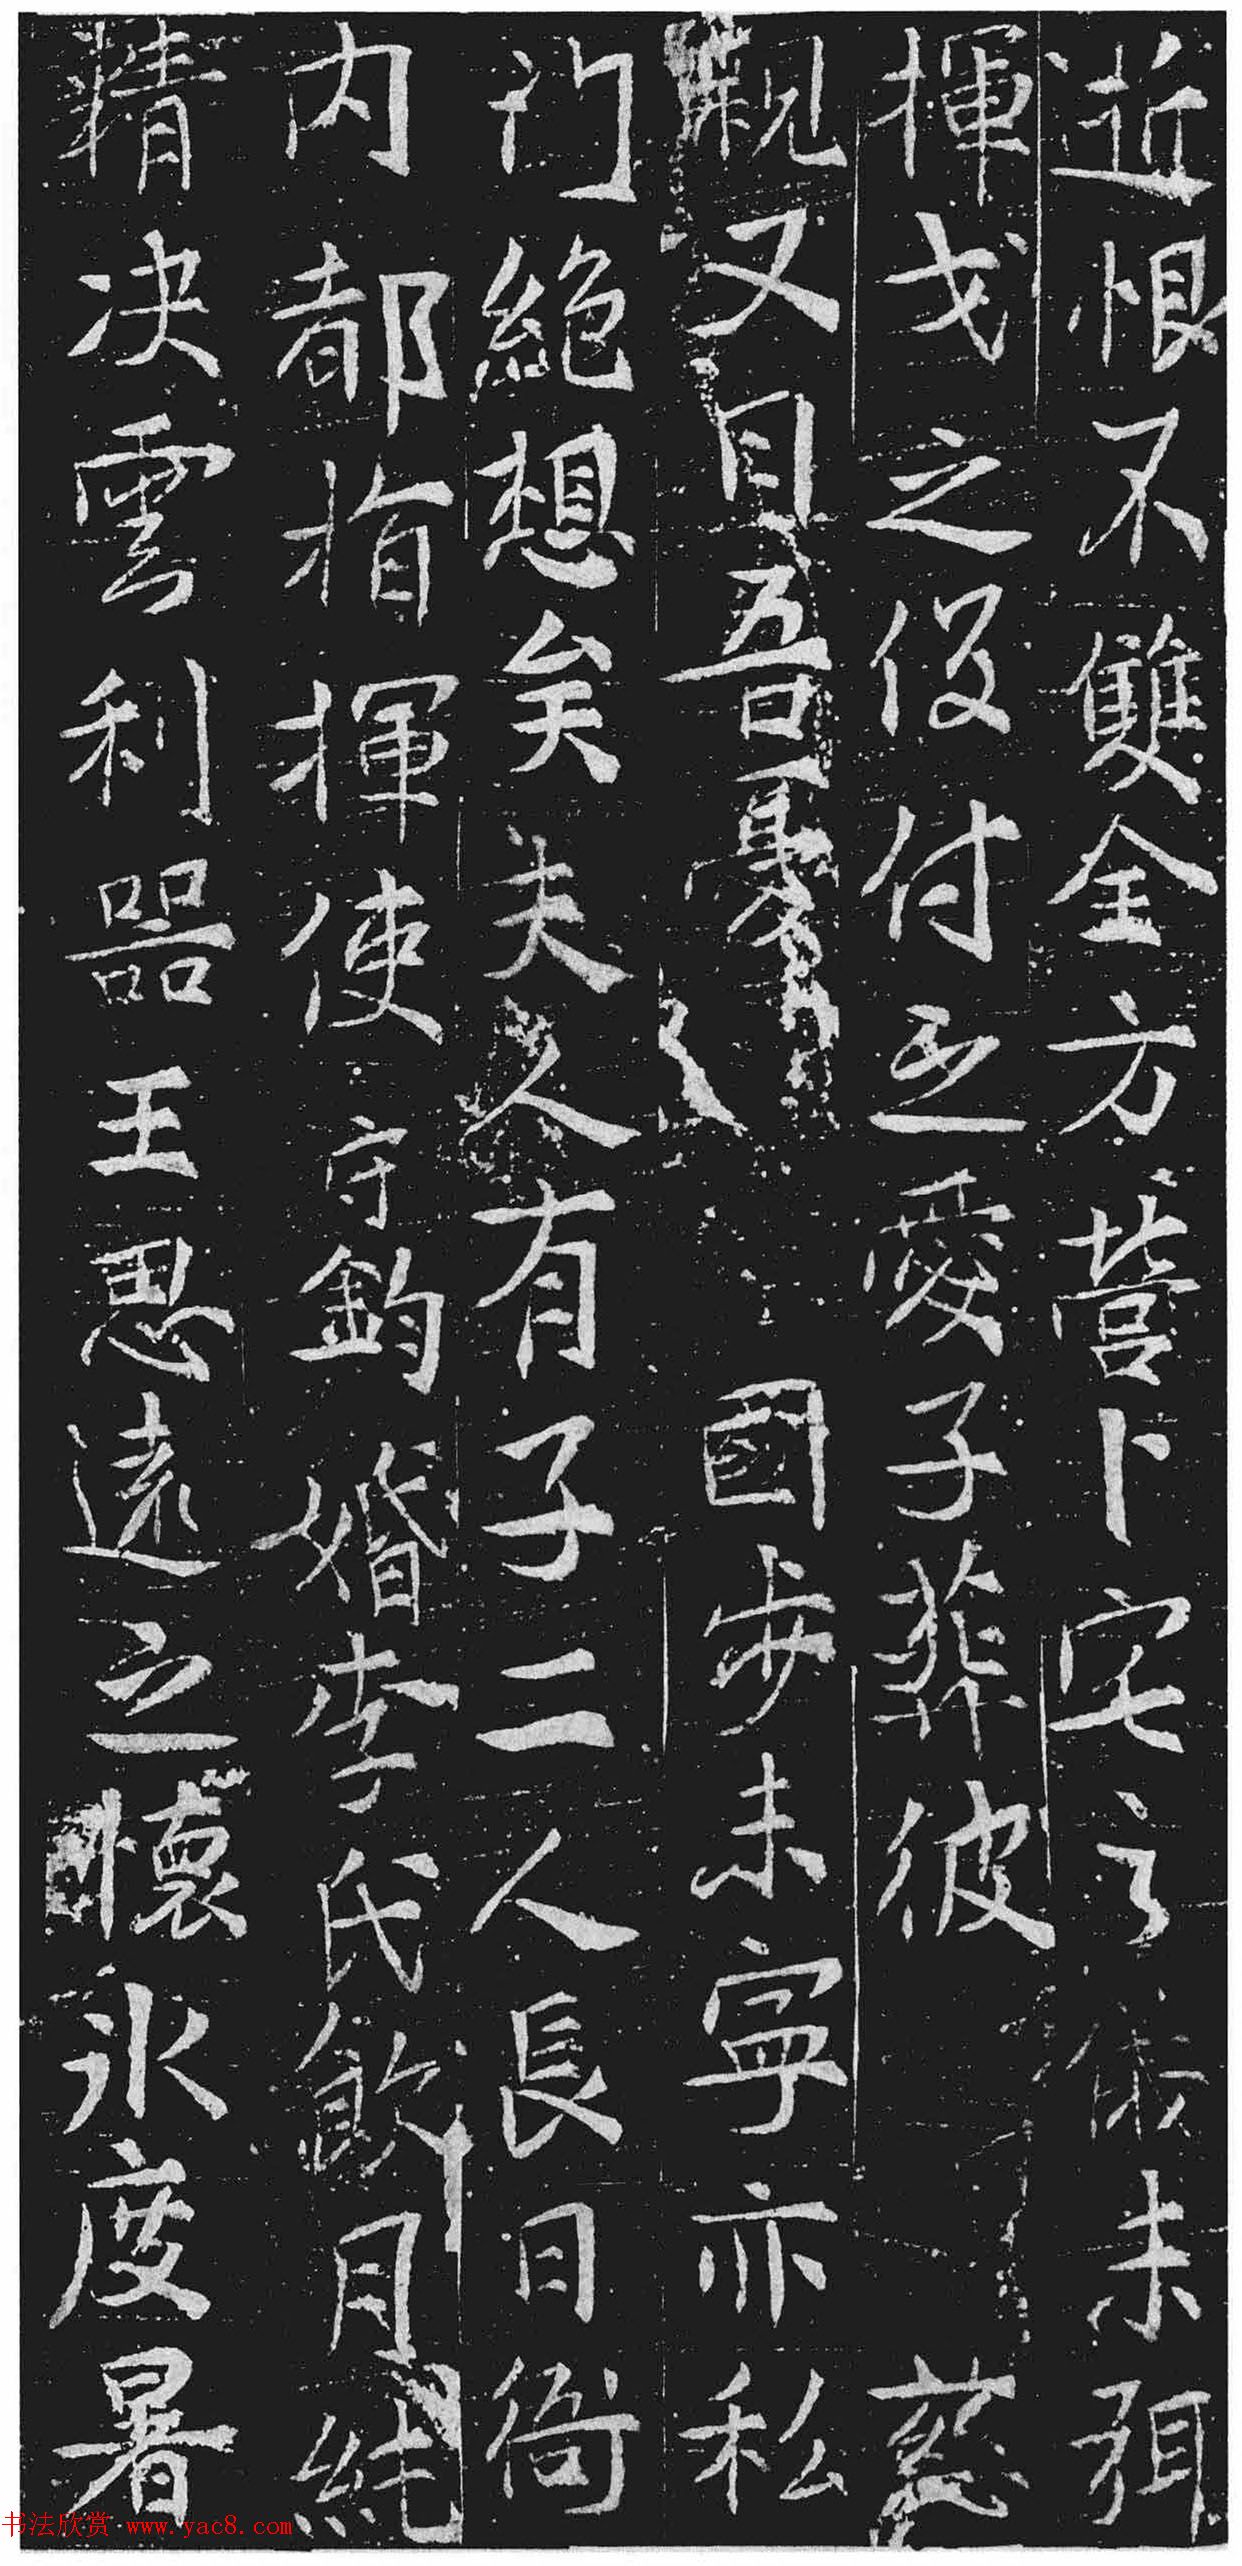 近恨不雙全方營卜宅之儀未弭
揮戈之役付之愛子葬彼慈
親又曰吾憂國步未寧亦私
門絕想矣夫人有子二人長曰衙
內都指揮使守鈞婚李氏飲月純
精决雲利器王思遠之懷氷度暑
书法欣赏 www.yac8.com